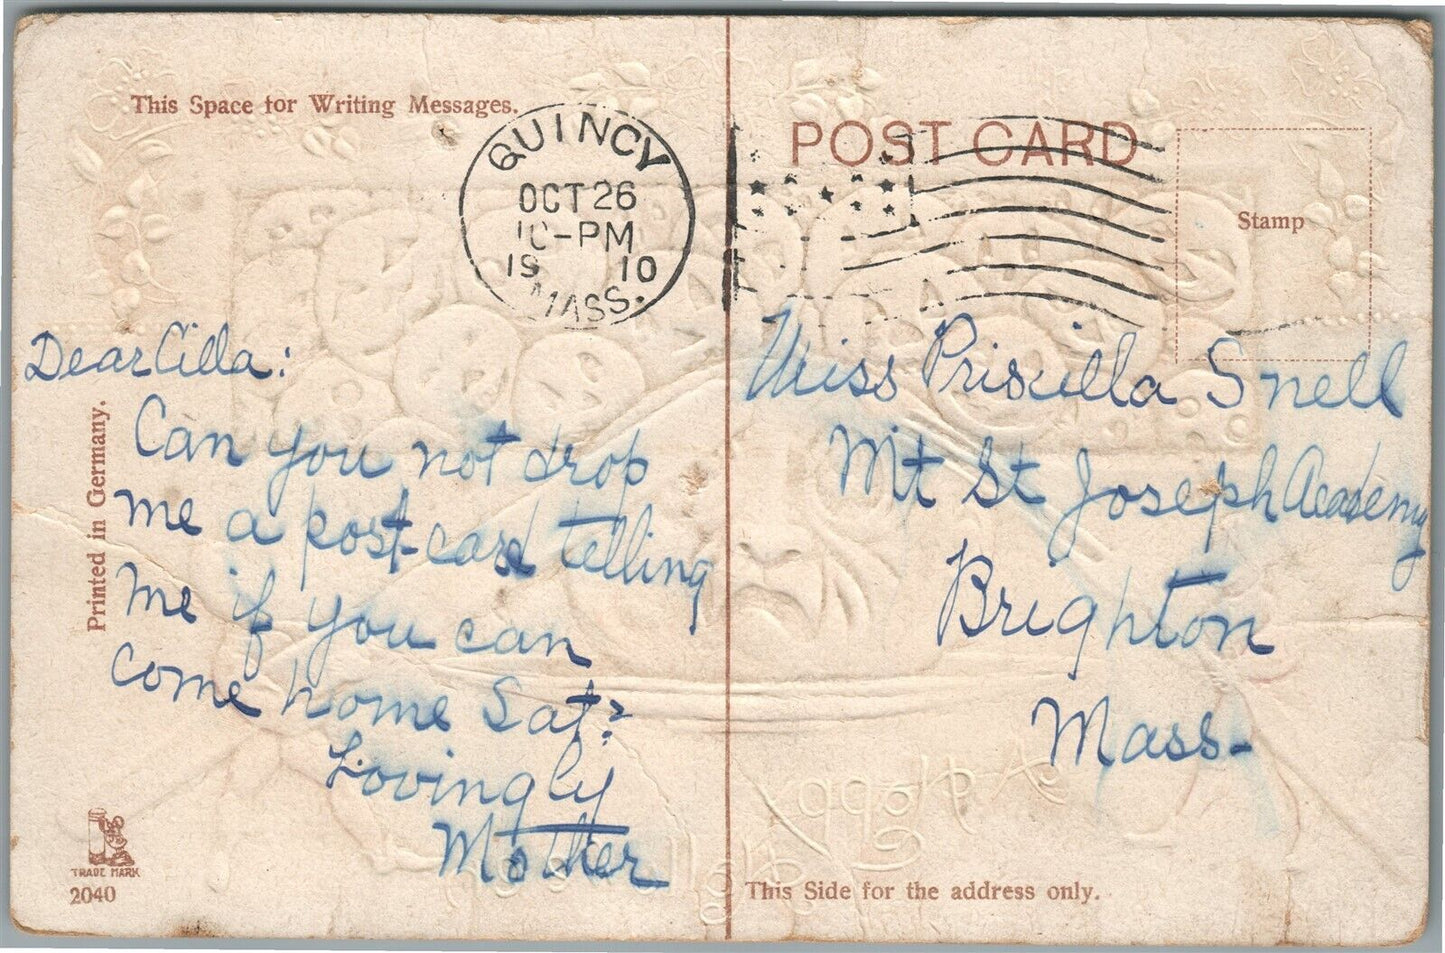 This Space for Writing Messages.
QUINCY
OCT 26
10-PM
1910
MASS.
POST CARD
Stamp
Dear Cilla:
Can you not drop
me a post-card telling
me if you can
come home Sat?
Lovingly
Mother
Miss Priscilla Snell
Mt St Joseph Academy
Brighton
Mass-
Printed in Germany.
TRADE MARK
2040
This Side for the address only.